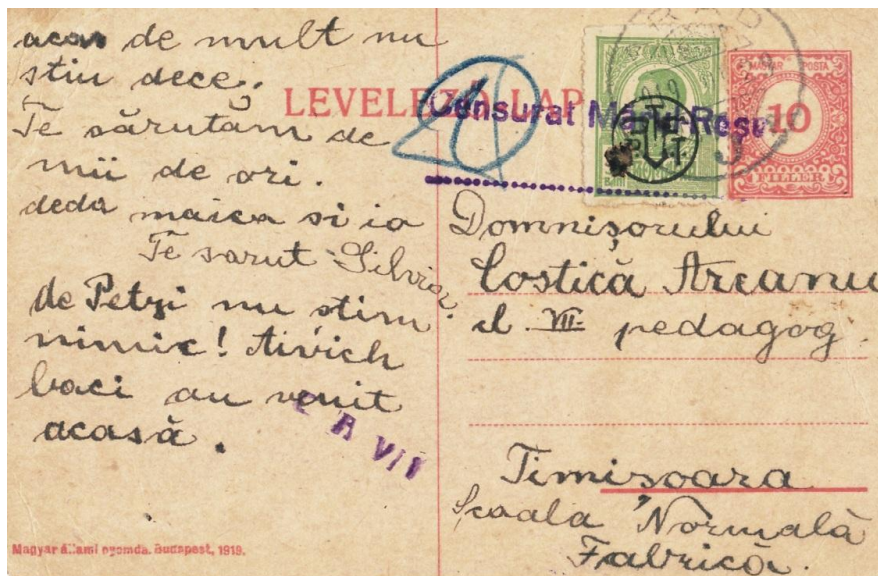 acas de mult nu
stiu dece.
Te sărutăm de
mii de ori.
deda maica si io
Te sarut Silvior
de Petzi nu stim
nimic! Aivich
baci au venit
acasă.
Magyar állami nyomda. Budapest, 1919.
LEVELEZŐ-LAP
Censurat
MAGYAR POSTA
10
FILLÉR
Bani
Domnișorului
Costică Areanu
cl. VII. pedagog.
Timișoara
Școala Normală
Fabrică.